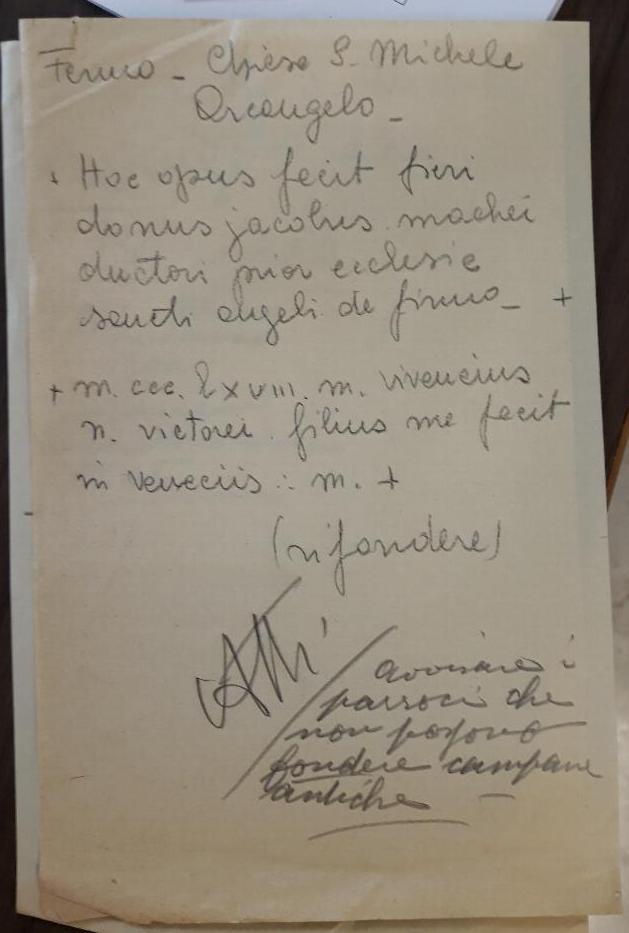 Fermo - Chiesa S. Michele
Arcangelo -
+ Hoc opus fecit fieri
donus jacobus machei
ductori prior ecclesie
sancti angeli de firmo - +
+ m. ccc. lxviii. m. vivencius
n. victorei. filius me fecit
in veneciis :. m. +
(rifondere)
Atti
avvisare i
parroci che
non possono
fondere campane
antiche -